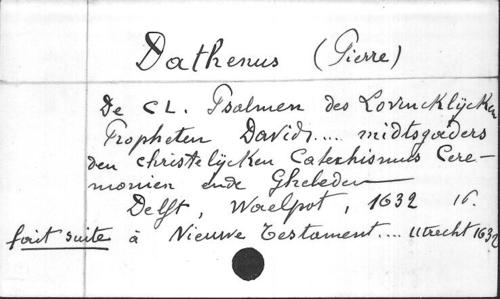 Dathenus (Pierre)
De CL. Psalmen des Lovincklijcken
Propheten Davids .... midtsgaders
den christelijcken Catechismus Cere-
monien ende Ghebeden
Delft, Waelpot, 1632 16.
fait suite à Nieuwe Testament ... Utrecht 1632